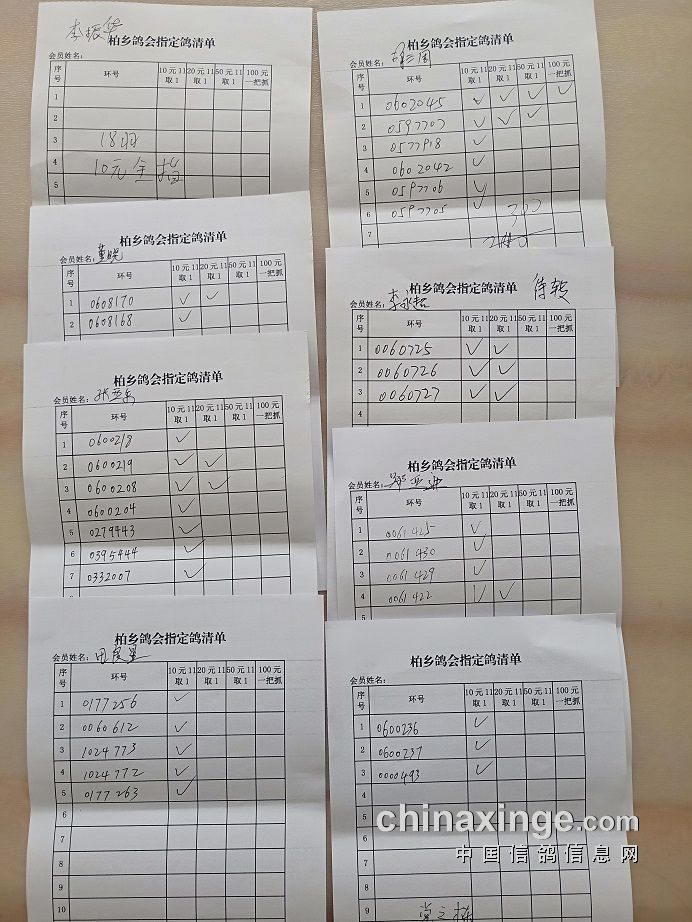 李振华
柏乡鸽会指定鸽清单
会员姓名:
序号 环号 10元11取1 20元11取1 50元11取1 100元一把抓
1
2
3 18羽
4 10元全指
5
柏乡鸽会指定鸽清单
会员姓名:
序号 环号 10元11取1 20元11取1 50元11取1 100元一把抓
1 0602045 ✓ ✓ ✓ ✓
2 0597707 ✓ ✓ ✓
3 0577918 ✓
4 0602042 ✓
5 0597706 ✓
6 0597705 ✓ 340
7
柏乡鸽会指定鸽清单
会员姓名: 董晓
序号 环号 10元11取1 20元11取1 50元11取1 100元一把抓
1 0608170 ✓ ✓
2 0608168 ✓
柏乡鸽会指定鸽清单 待转
会员姓名: 李永超
序号 环号 10元11取1 20元11取1 50元11取1 100元一把抓
1 0060725 ✓ ✓
2 0060726 ✓ ✓
3 0060727 ✓ ✓
4
柏乡鸽会指定鸽清单
会员姓名:
序号 环号 10元11取1 20元11取1 50元11取1 100元一把抓
1 0600218 ✓
2 0600219 ✓ ✓
3 0600208 ✓ ✓
4 0600204 ✓
5 0279443 ✓
6 0395444 ✓
7 0332007 ✓
柏乡鸽会指定鸽清单
会员姓名:
序号 环号 10元11取1 20元11取1 50元11取1 100元一把抓
1 0061425 ✓
2 0061430 ✓
3 0061429 ✓
4 0061422 ✓ ✓
5
柏乡鸽会指定鸽清单
会员姓名:
序号 环号 10元11取1 20元11取1 50元11取1 100元一把抓
1 0177256 ✓
2 0060612 ✓
3 1024773 ✓
4 1024772 ✓
5 0177263 ✓
6
7
8
9
10
柏乡鸽会指定鸽清单
会员姓名:
序号 环号 10元11取1 20元11取1 50元11取1 100元一把抓
1 0600236 ✓
2 0600237 ✓
3 0000493 ✓
4
5
8
9
chinaxinge.com
中国信鸽信息网